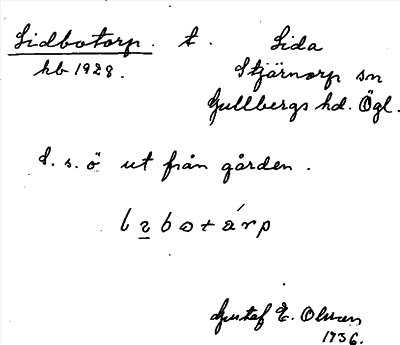 Lidbotorp. t. Lida
hb 1928.
Stjärnorp sn
Gullbergs hd. Ögl.
S. s. ö ut från gården.
Gustaf E. Olsson
1936.